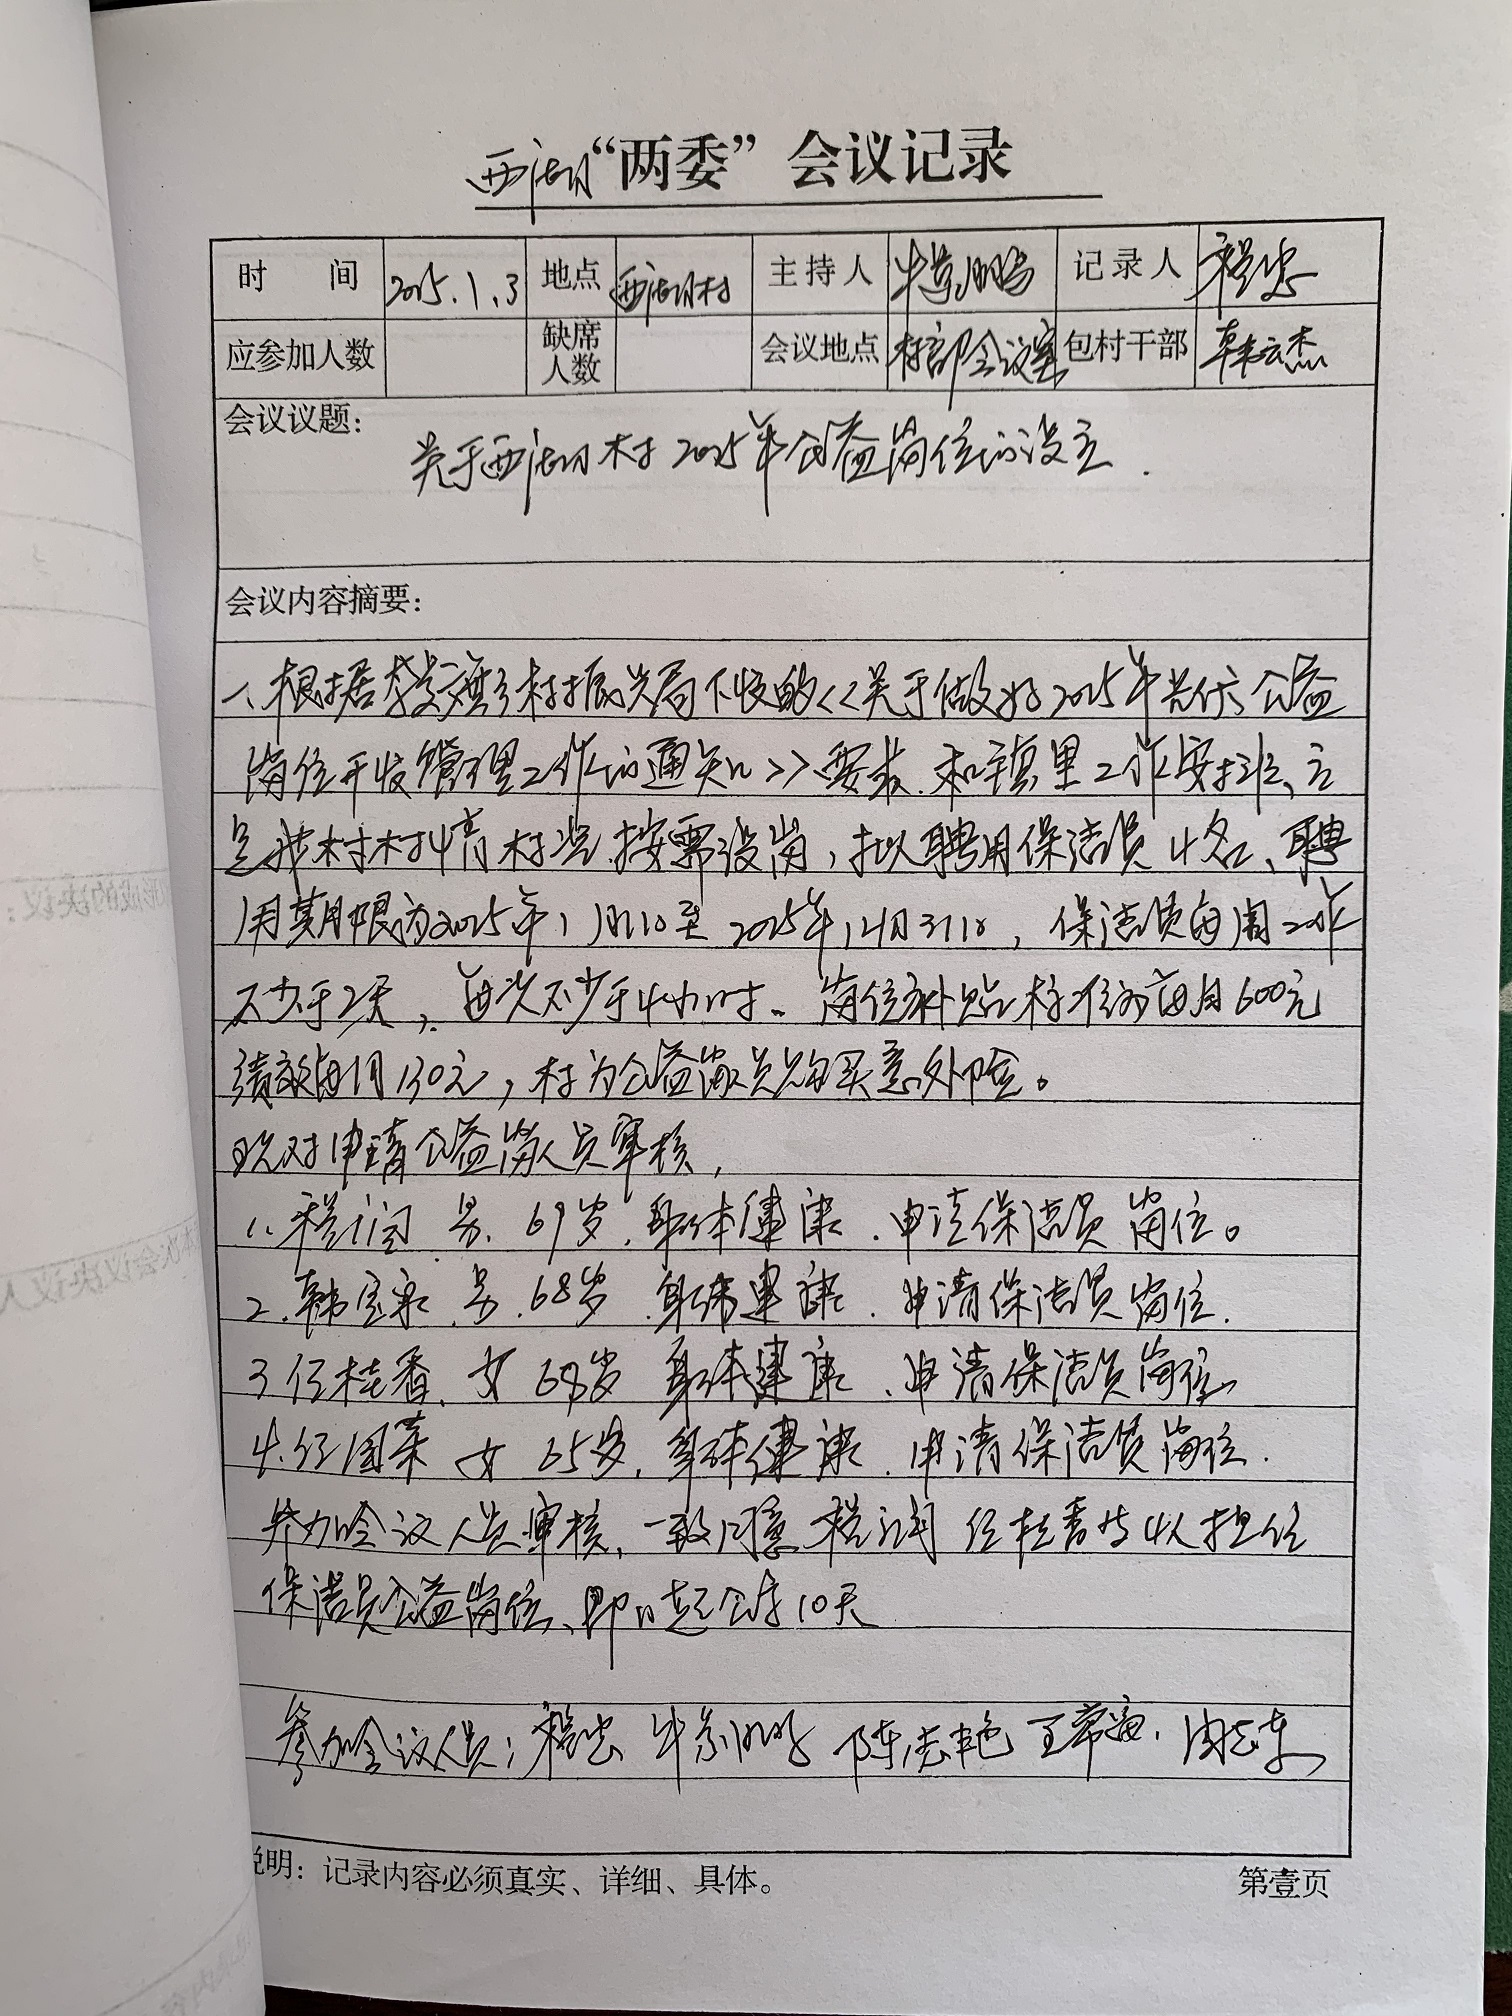 西湖“两委”会议记录
时 间 2025.1.3 地点 西湖村 主持人 牛景鹏 记录人 程忠
应参加人数 缺席人数 会议地点 村部会议室 包村干部 韩云杰
会议议题：
关于西湖村2025年公益岗位的设立.
会议内容摘要：
一、根据旗乡村振兴局下发的<<关于做好2025年公益
岗位开发管理工作的通知>>要求.和镇里工作安排、立
足我村村情村况.按需设岗，拟聘用保洁员4名、聘
用期限为2025年1月1日至2025年12月31日，保洁员每周工作
不少于2天，每次不少于4小时。岗位补贴标准为每月600元
绩效每月130元，村为公益岗人员购买意外险。
现对申请公益岗人员审核，
1.程润 男.69岁.身体健康.申请保洁员岗位。
2.韩宝 男.68岁.身体健康.申请保洁员岗位.
3 任桂香.女 68岁 身体健康.申请保洁员岗位
4.任国英 女 65岁.身体健康.申请保洁员岗位.
参加会议人员审核，一致同意程润 任桂香等4人担任
保洁员公益岗位、即日起公示10天
参加会议人员：程忠 牛景鹏 陈志艳 王常海. 周志东
说明：记录内容必须真实、详细、具体。
第壹页
形成的决议：